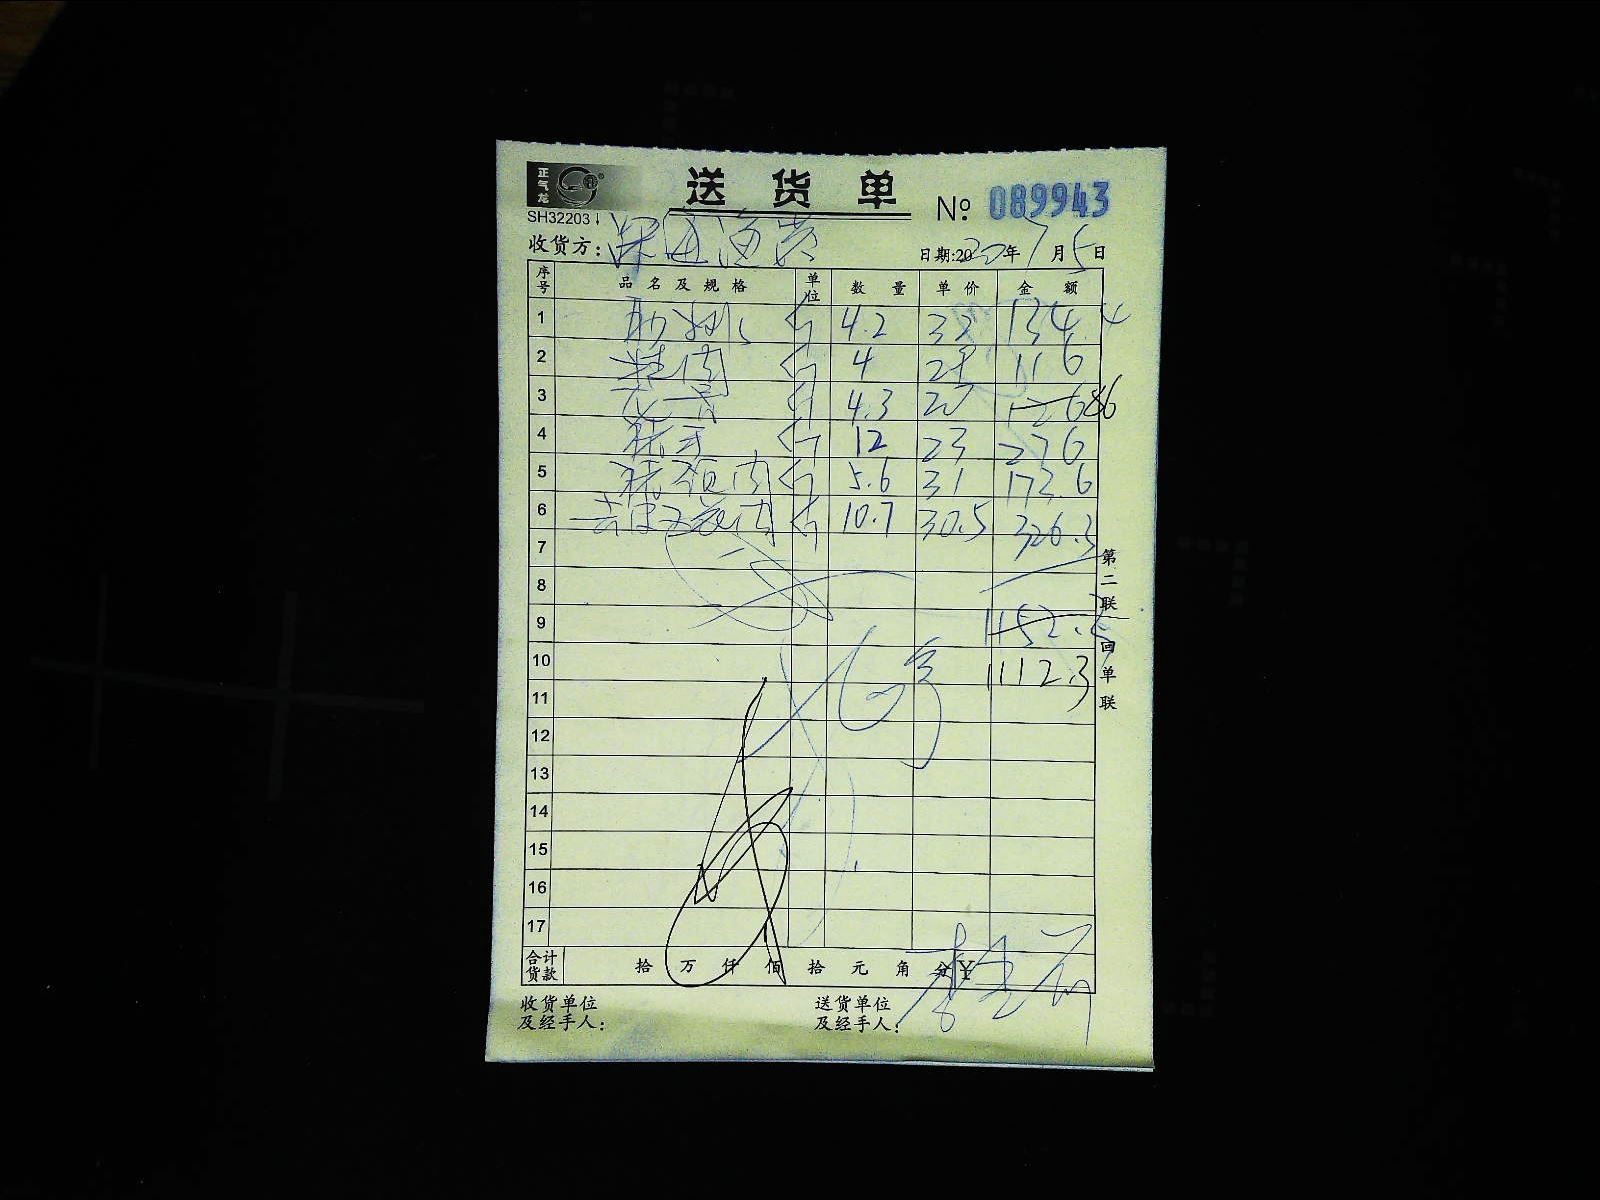 正气龙
送货单
№ 089943
SH32203
收货方:
日期:2020年7月5日
序号 品名及规格 单位 数量 单价 金额
1 斤 4.2 32 134.4
2 精肉 斤 4 29 116
3 斤 4.3 20 86
4 斤 12 23 276
5 斤 5.6 31 173.6
6 去皮五花肉 斤 10.7 30.5 326.3
7
8
9 1152.5
10 1112.3
11
12
13
14
15
16
17
合计货款 拾 万 仟 佰 拾 元 角 分 ¥
收货单位及经手人:
送货单位及经手人:
第二联 回单联